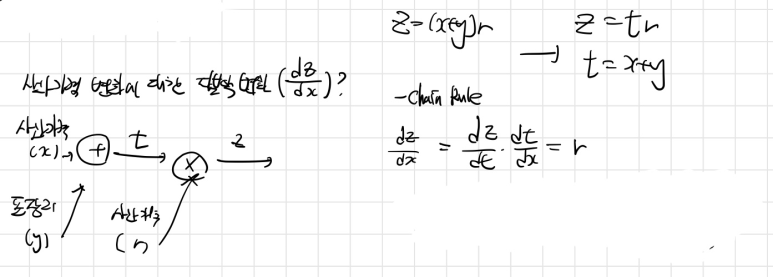 사과가격 변화에 대한 지불금액 변화 (dz/dx)?
사과가격
(x)
+
t
×
z
포장비
(y)
(r)
z=(x+y)r
→
z=tr
t=x+y
-Chain Rule
dz/dx = dz/dt · dt/dx = r